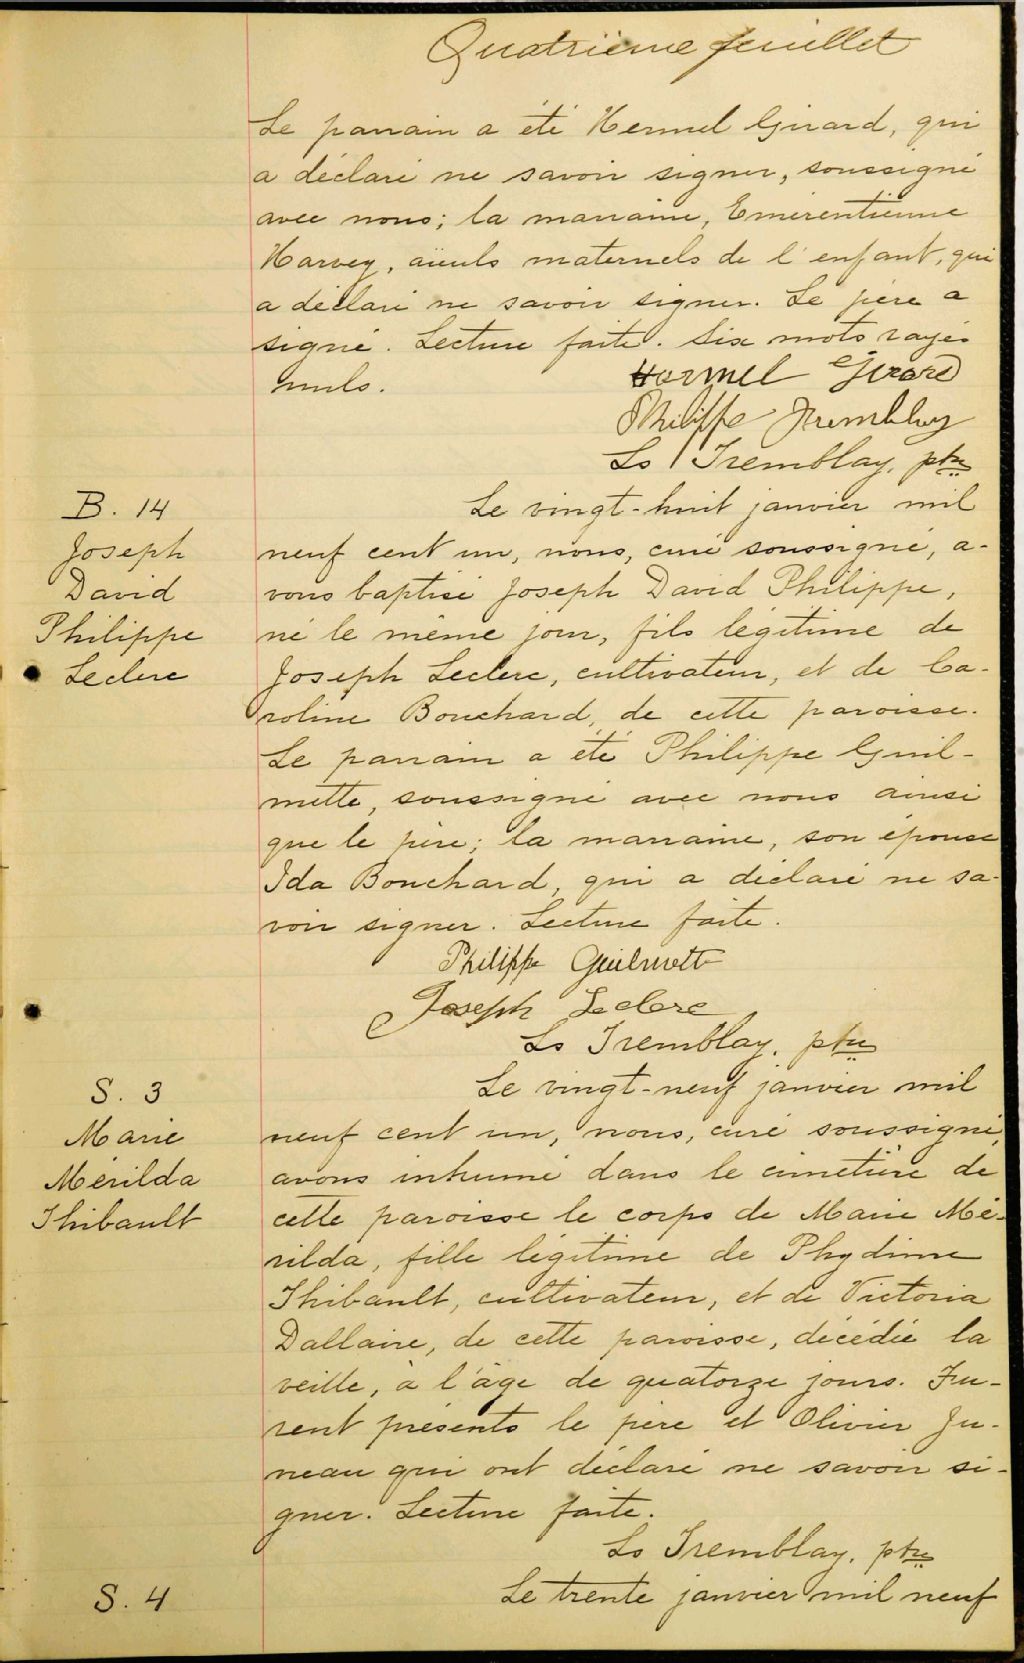 Quatrième feuillet
Le parrain a été Hermel Girard, qui
a déclaré ne savoir signer, soussigné
avec nous; la marraine, Emérentienne
Harvey, aïeuls maternels de l'enfant, qui
a déclaré ne savoir signer. Le père a
signé. Lecture faite. Six mots rayés
nuls.
Hormel Girard
Philippe Tremblay
Ls Tremblay, ptre
B. 14
Joseph
David
Philippe
Leclerc
Le vingt-huit janvier mil
neuf cent un, nous, curé soussigné, a-
vons baptisé Joseph David Philippe,
né le même jour, fils légitime de
Joseph Leclerc, cultivateur, et de Ca-
roline Bouchard, de cette paroisse.
Le parrain a été Philippe Guil-
mette, soussigné avec nous ainsi
que le père; la marraine, son épouse
Ida Bouchard, qui a déclaré ne sa-
voir signer. Lecture faite.
Philippe Guilmette
Joseph Leclerc
Ls Tremblay, ptre
S. 3
Marie
Mérilda
Thibault
Le vingt-neuf janvier mil
neuf cent un, nous, curé soussigné,
avons inhumé dans le cimetière de
cette paroisse le corps de Marie Mé-
rilda, fille légitime de Phydime
Thibault, cultivateur, et de Victoria
Dallaire, de cette paroisse, décédée la
veille, à l'âge de quatorze jours. Fu-
rent présents le père et Olivier Ju-
neau qui ont déclaré ne savoir si-
gner. Lecture faite.
Ls Tremblay, ptre
S. 4
Le trente janvier mil neuf